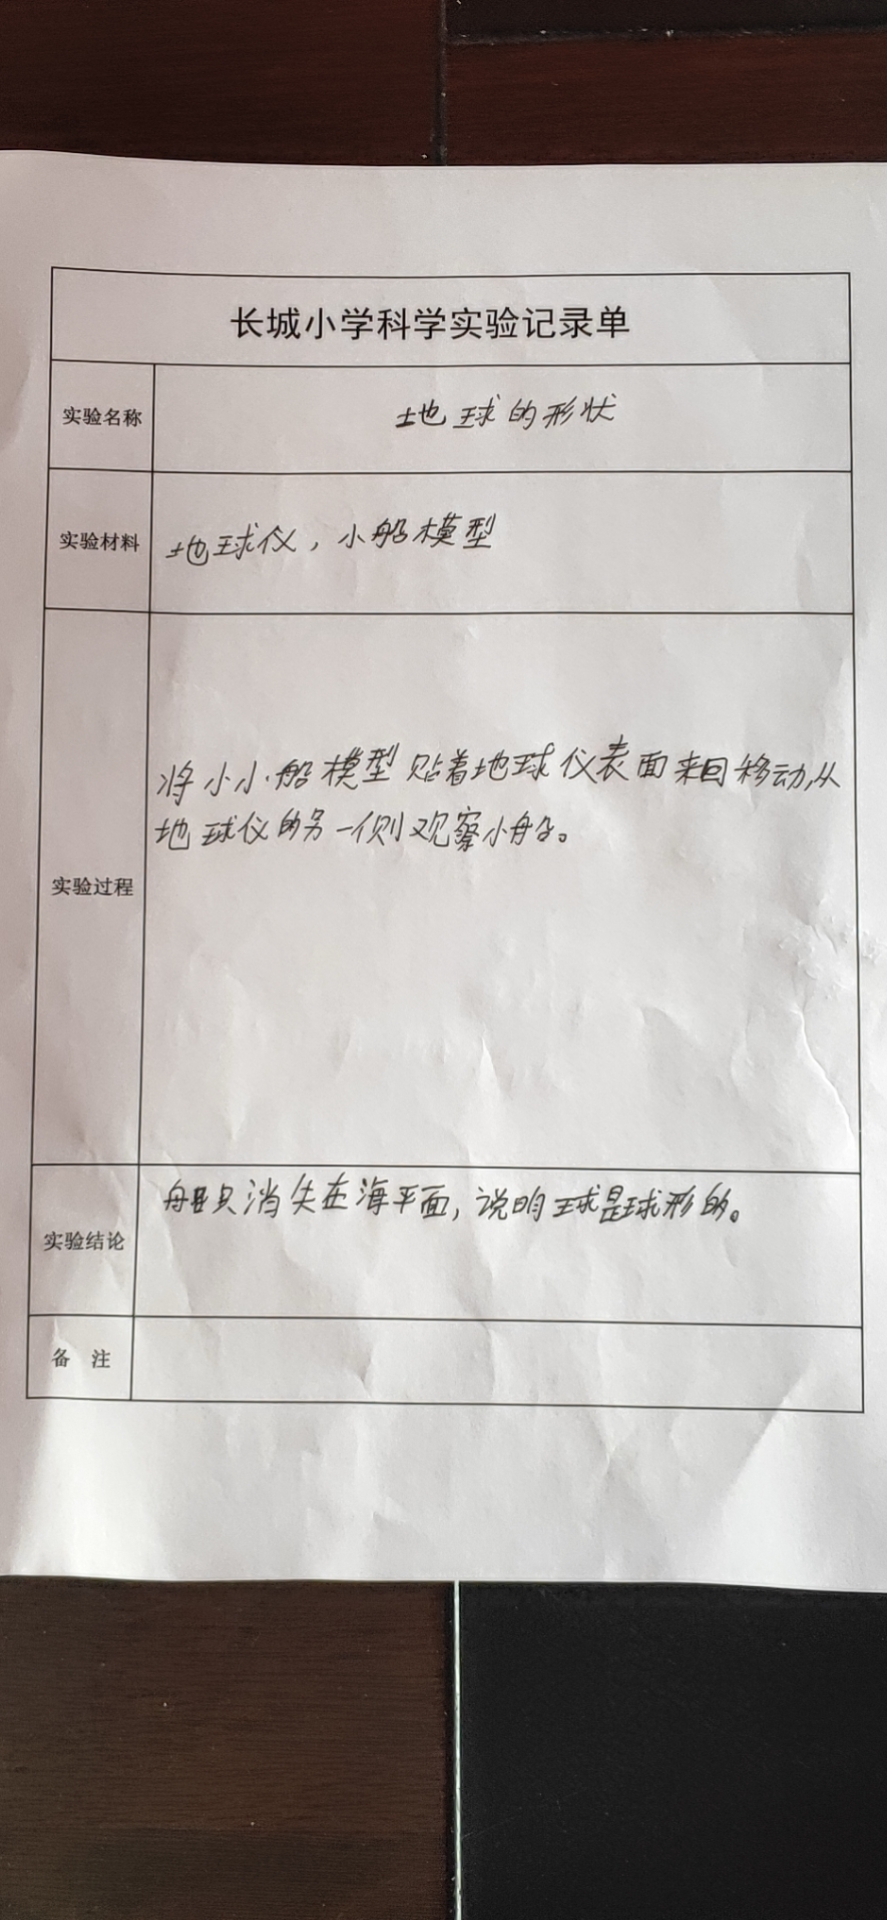 长城小学科学实验记录单
实验名称
地球的形状
实验材料
地球仪，小船模型
实验过程
将小小船模型贴着地球仪表面来回移动,从
地球仪的另一侧观察小船。
实验结论
船只消失在海平面，说明球是球形的。
备 注